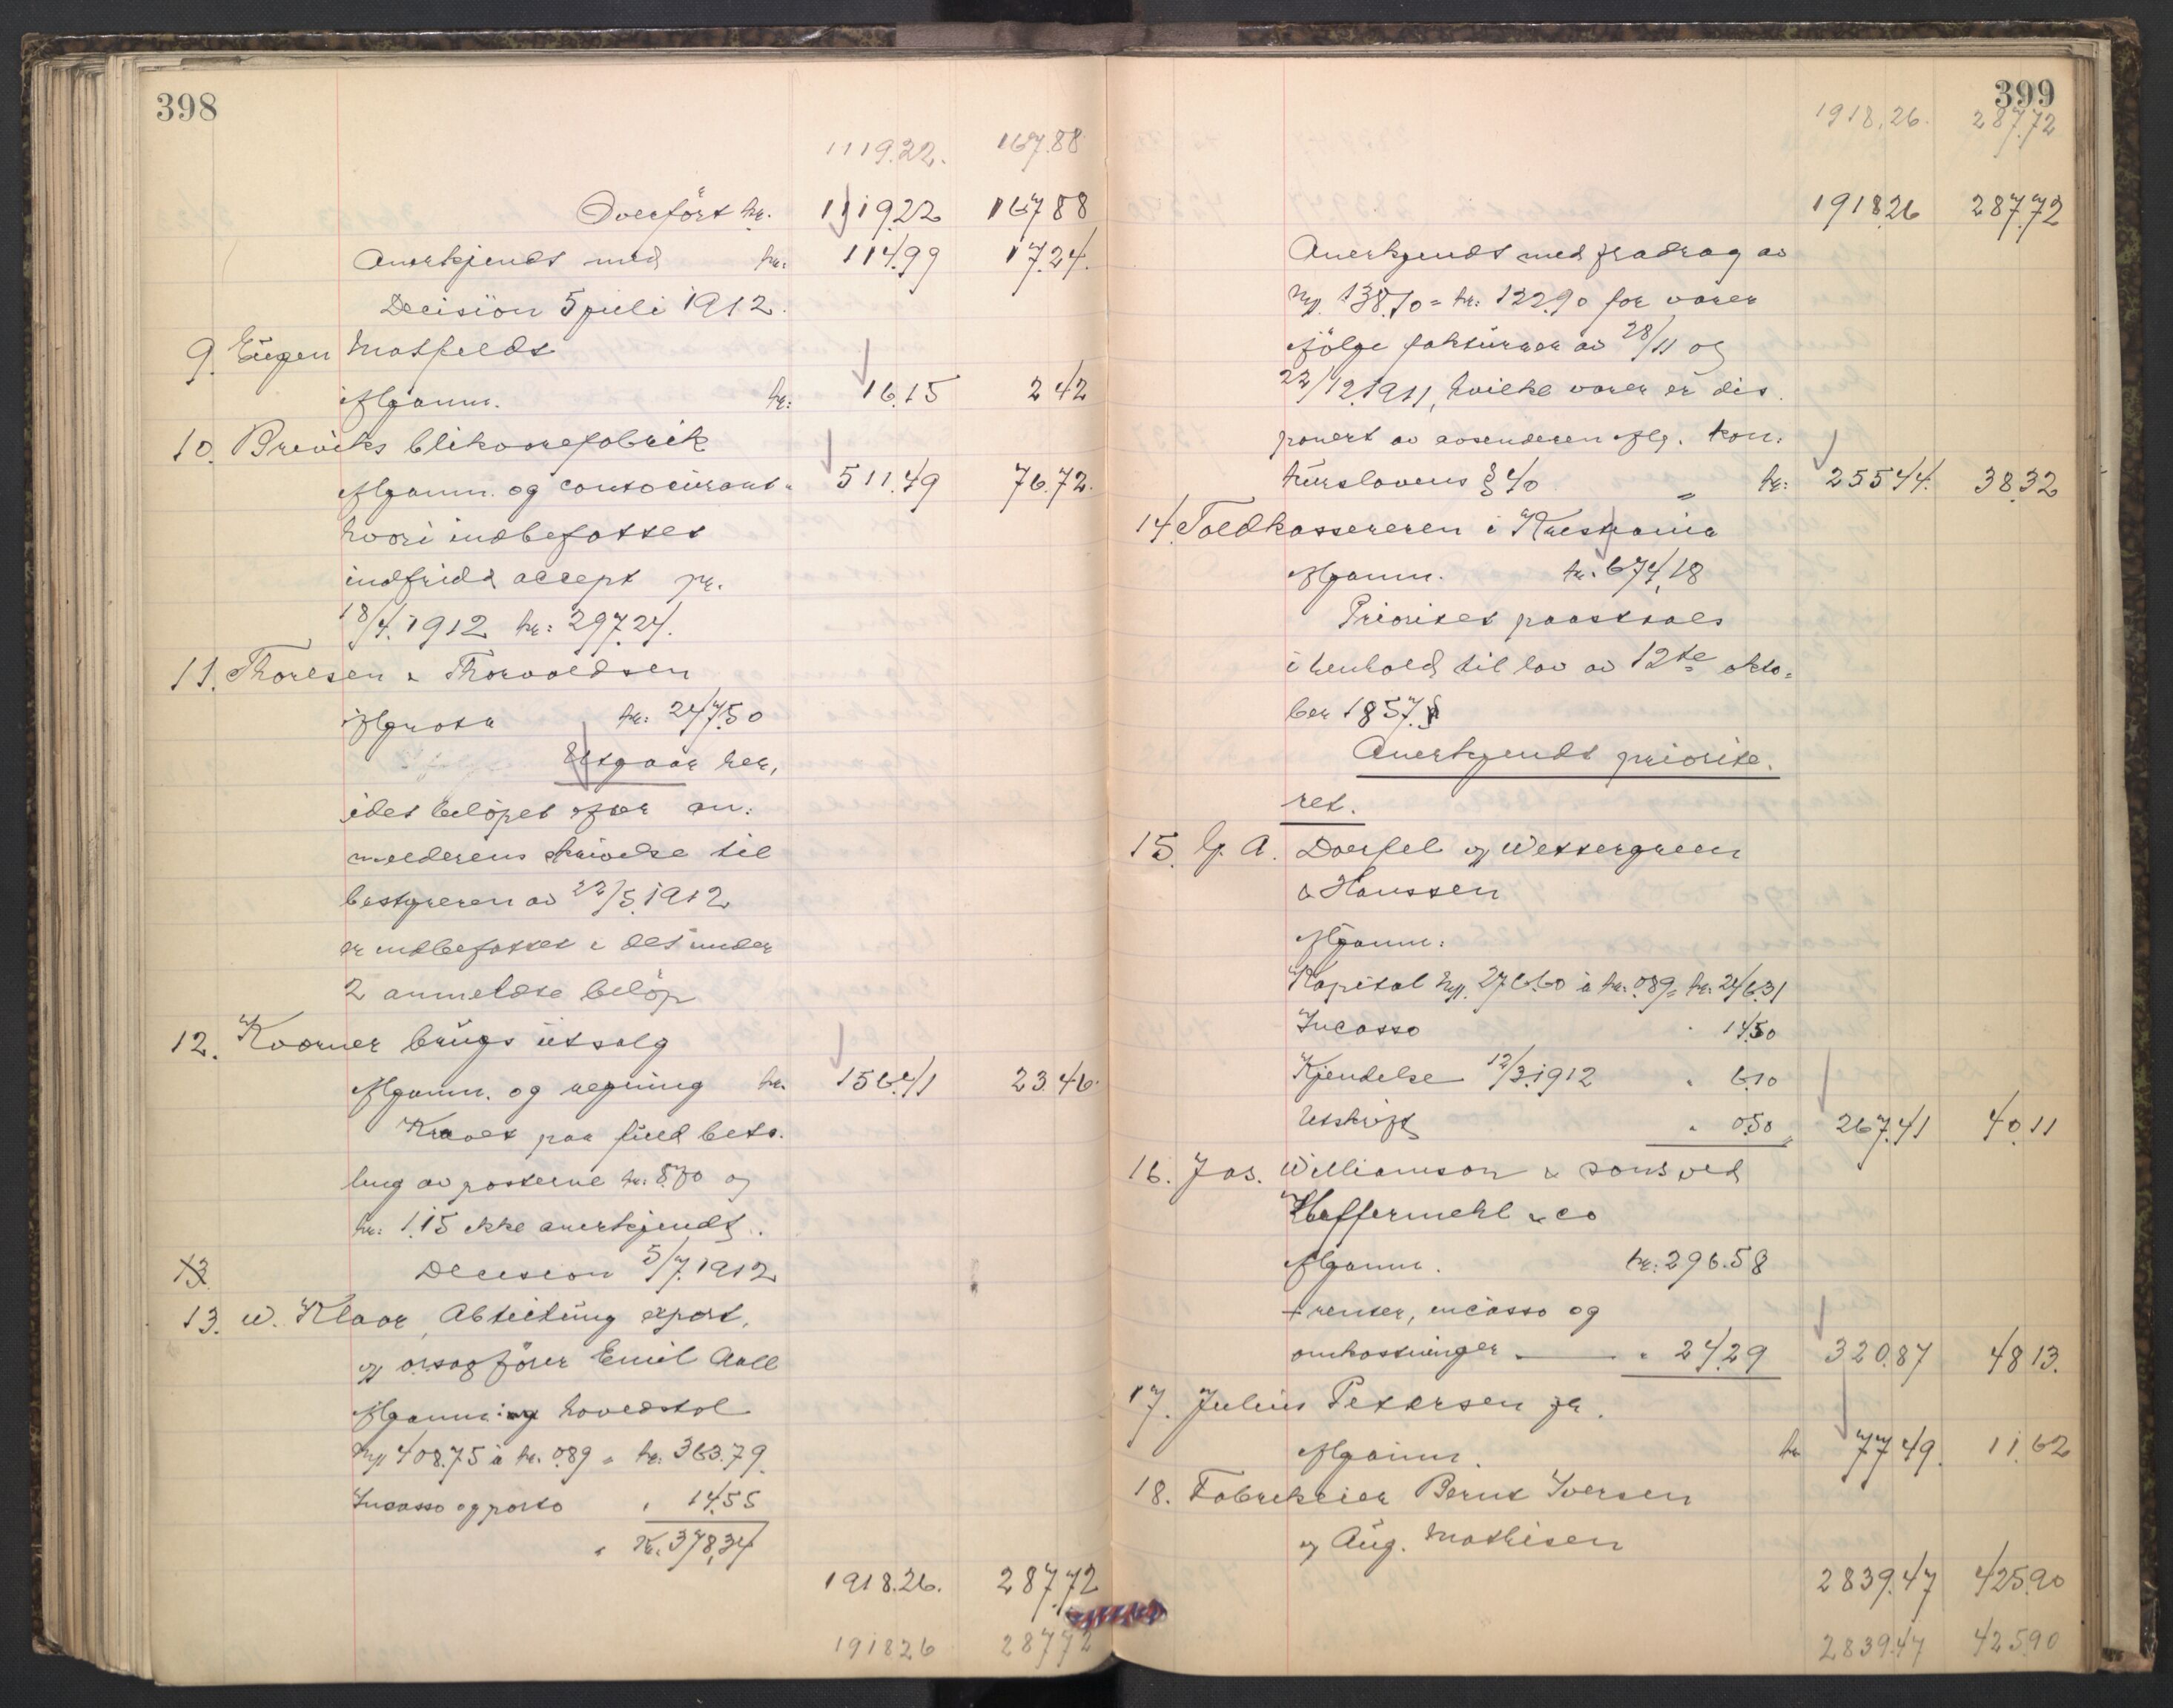 398
1119.22. 167.88
Overført kr. 1119.22 167.88
Anerkjendt med kr: 114.99 17.24.
Decision 5 juli 1912.
9. Eugen Matfeldt
iflganm. kr: 16.15 2.42
10. Breviks blikvarefabrik
iflganm. og contocurant " 511.49 76.72.
hvori indbefattet
indfridd accept pr.
18/4. 1912 kr: 297.24.
11. Thoresen & Thorvaldsen
iflgnota kr: 247.50
Utgaar her,
idet beløpet efter an:
melderens skrivelse til
bestyreren av 22/5.1912
er indbefattet i det under
2 anmeldte beløp
12. Kværner brugs utsalg
iflganm. og regning kr. 156.41 23.46.
Kravet paa fuld beta.
ling av posterne kr. 8.70 og
kr: 1.15 ikke anerkjendt.
13. Decision 5/7.1912
13. W. Klaar, Abteilung export,
v/ o.r.sagfører Emil Aall
iflganm: hovedstol
Rm 408.75 à kr. 0.89 = kr. 363.79.
Incasso og porto " 14.55
" Kr. 378,34
1918.26. 287.72
1918 26 287 72
399
1918,26. 287.72
1918.26 287.72
Anerkjendt med fradrag av
Rm. 138.10 = kr: 122.90 for varer
ifølge fakturaer av 28/11 og
22/12.1911, hvilke varer er dis.
ponert av avsenderen iflg. kon:
kurslovens § 40 " kr: 255.44. 38.32
14. Toldkassereren i Kristiania
iflganm. kr. 674,18
Prioritet paastaaes
i henhold til lov av 12te okto.
ber 1857.
Anerkjendt priorite.
ret.
15. G. A. Doerfel v/ Wettergreen
& Hanssen
iflganm:
Kapital Rm. 276.60 à kr. 0.89 = kr. 246.31
Incasso " 14.50
Kjendelse 12/3.1912 " 6.10
Utskrift " 0.50 " 267.41 40.11
16. Jas. Williamson & sons ved
Heffermehl & co
iflganm. kr: 296.58
+ renter, incasso og
omkostninger " 24.29 320.87 48.13.
17. Julius Petersen jr.
iflganm. kr 77.49. 11.62
18. Fabrikeier Bernt Iversen
v/ Aug. Mathisen
2839.47 425.90
2839.47 425.90